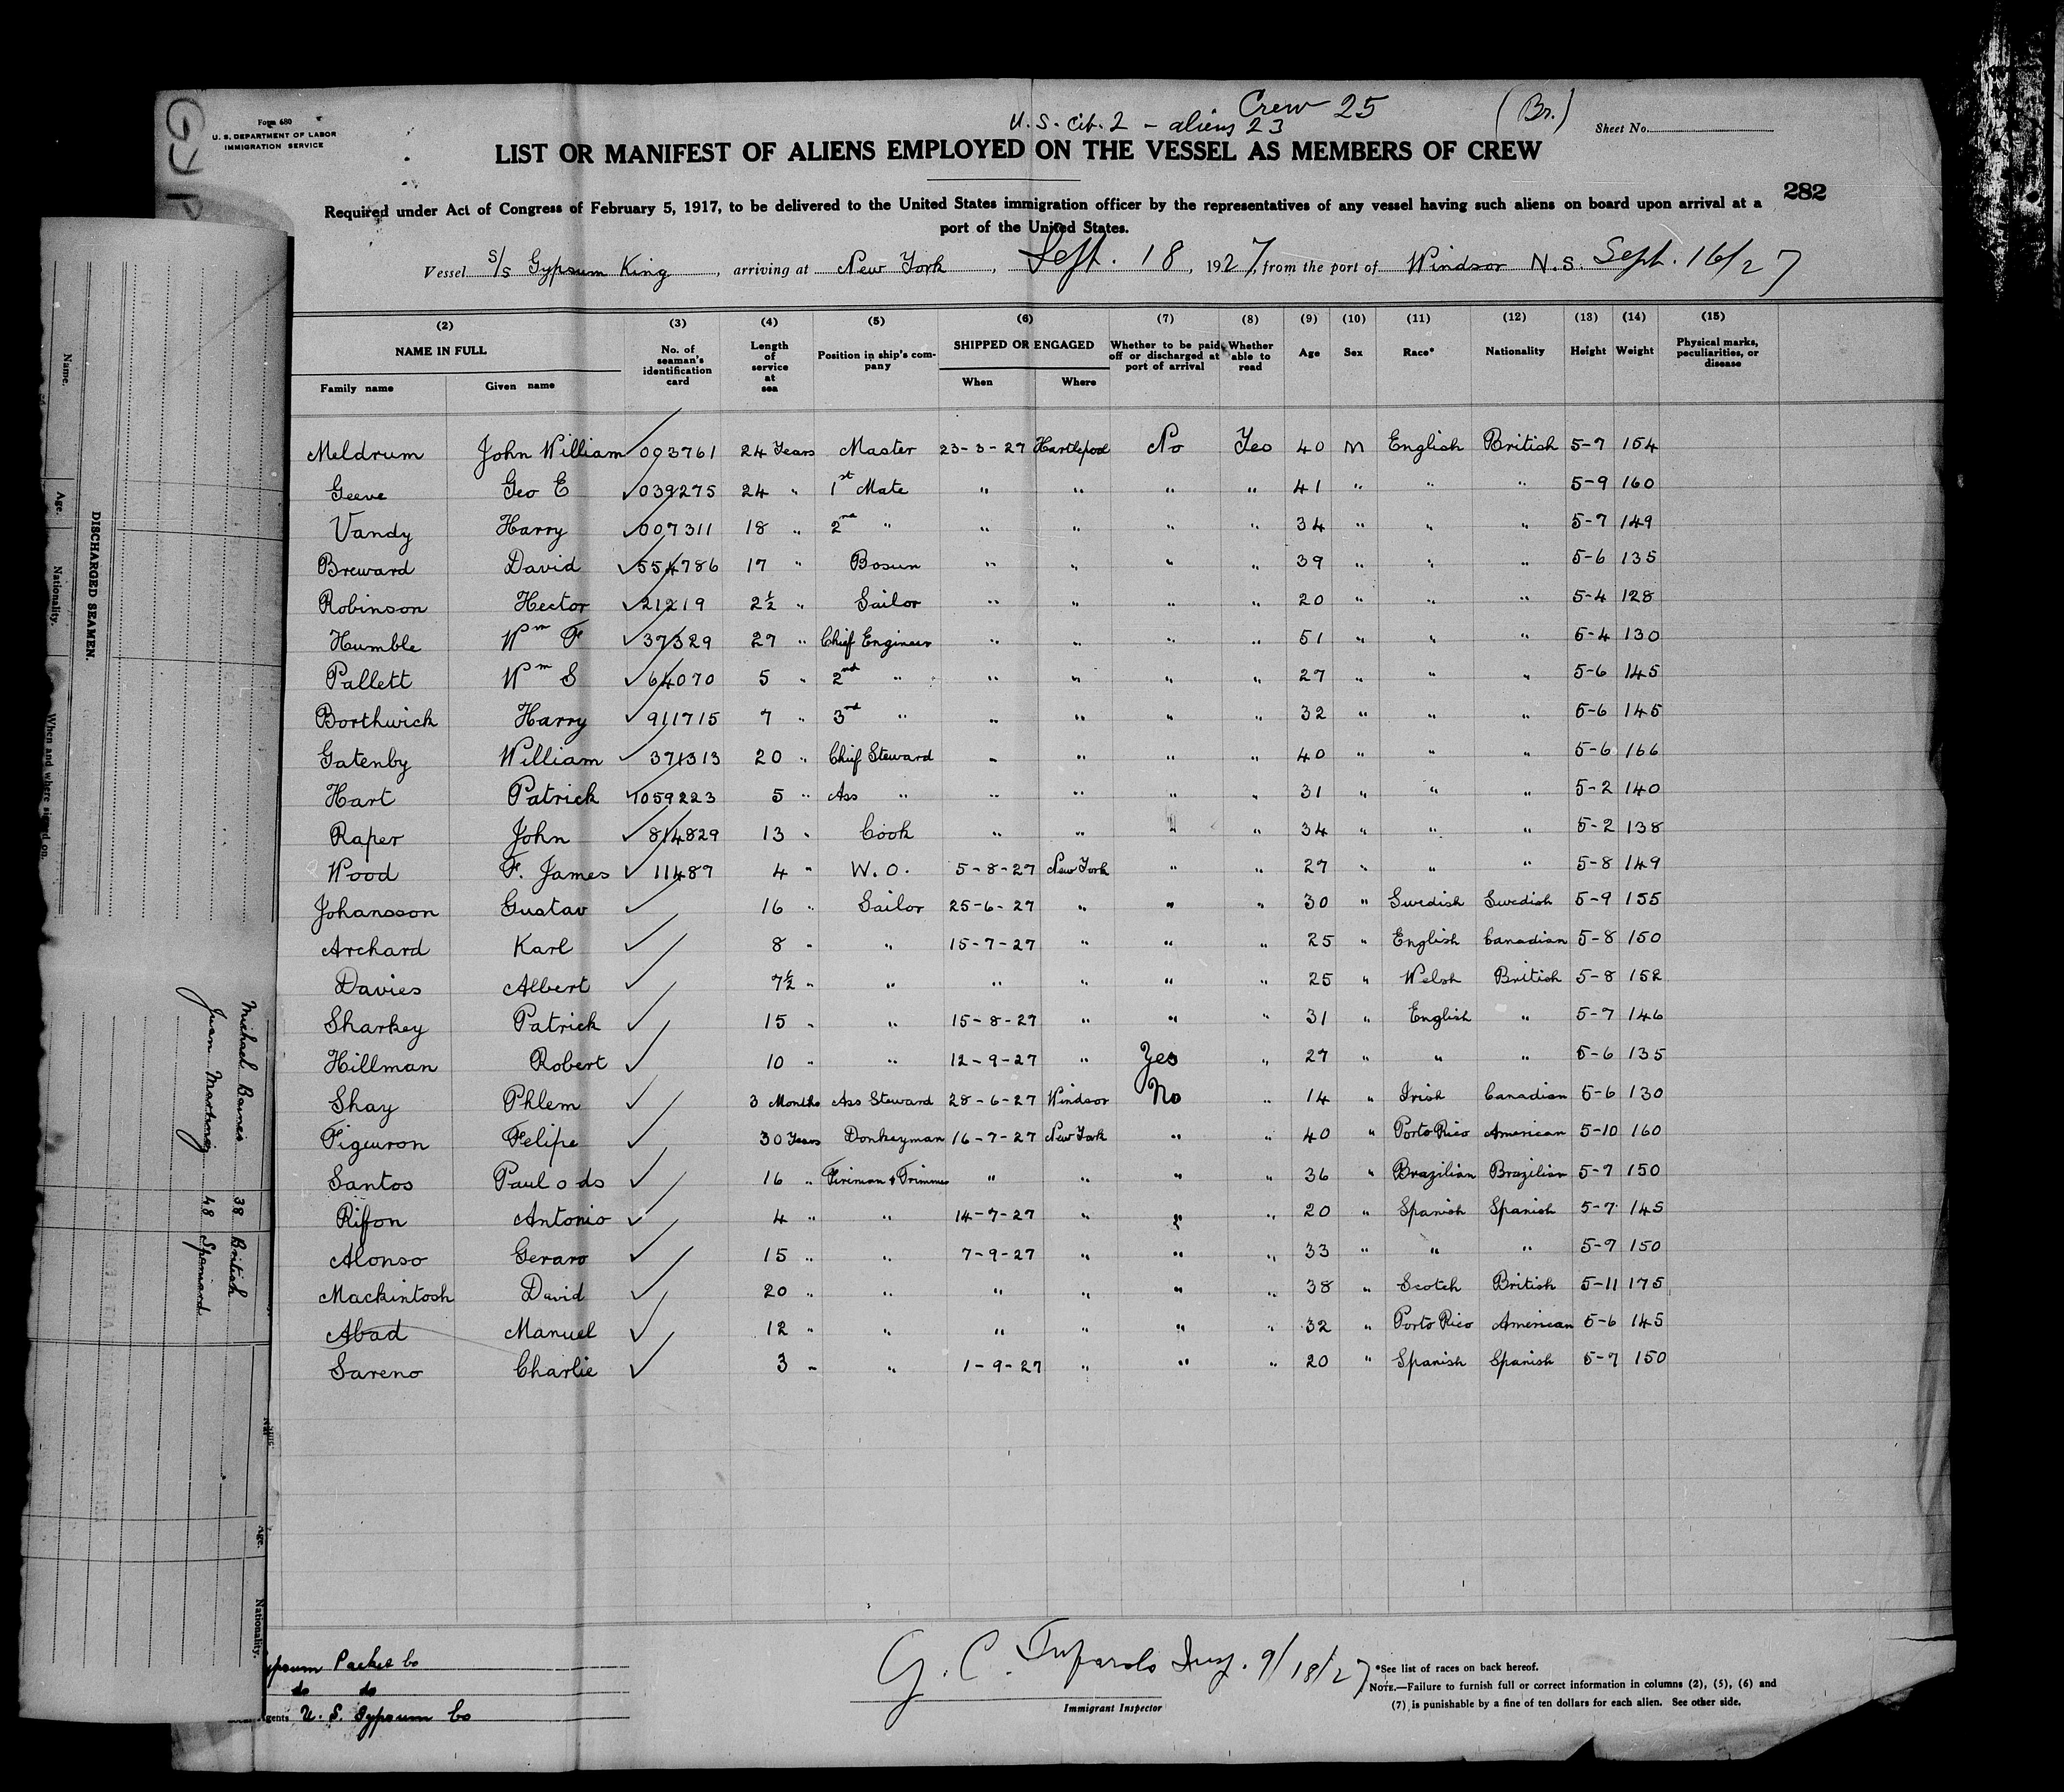 Form 680
U. S. DEPARTMENT OF LABOR
IMMIGRATION SERVICE
Crew 25
U. S. Cit. 2 - aliens 23
(Br.)
Sheet No.
LIST OR MANIFEST OF ALIENS EMPLOYED ON THE VESSEL AS MEMBERS OF CREW
282
Required under Act of Congress of February 5, 1917, to be delivered to the United States immigration officer by the representatives of any vessel having such aliens on board upon arrival at a
port of the United States.
Vessel S/S Gypsum King, arriving at New York, Sept. 18, 1927, from the port of Windsor N.S. Sept. 16/27
(2) (3) (4) (5) (6) (7) (8) (9) (10) (11) (12) (13) (14) (15)
NAME IN FULL No. of seaman's identification card Length of service at sea Position in ship's company SHIPPED OR ENGAGED Whether to be paid off or discharged at port of arrival Whether able to read Age Sex Race* Nationality Height Weight Physical marks, peculiarities, or disease
Family name Given name When Where
Meldrum John William 093761 24 Years Master 23-3-27 Hartlepool No Yes 40 M English British 5-7 154
Geeve Geo E 039275 24 " 1st Mate " " " " 41 " " " 5-9 160
Vandy Harry 007311 18 " 2nd " " " " " 34 " " " 5-7 149
Breward David 554786 17 " Bosun " " " " 39 " " " 5-6 135
Robinson Hector 21219 2½ " Sailor " " " " 20 " " " 5-4 128
Humble Wm F 37329 27 " Chief Engineer " " " " 51 " " " 5-4 130
Pallett Wm S 64070 5 " 2nd " " " " " 27 " " " 5-6 145
Borthwick Harry 911715 7 " 3rd " " " " " 32 " " " 5-6 145
Gatenby William 371313 20 " Chief Steward " " " " 40 " " " 5-6 166
Hart Patrick 1059223 5 " Ass " " " " " 31 " " " 5-2 140
Raper John 814829 13 " Cook " " " " 34 " " " 5-2 138
Wood F. James 11487 4 " W. O. 5-8-27 New York " " 27 " " " 5-8 149
Johansson Gustav 16 " Sailor 25-6-27 " " " 30 " Swedish Swedish 5-9 155
Archard Karl 8 " " 15-7-27 " " " 25 " English Canadian 5-8 150
Davies Albert 7½ " " " " " " 25 " Welsh British 5-8 152
Sharkey Patrick 15 " " 15-8-27 " " " 31 " English " 5-7 146
Hillman Robert 10 " " 12-9-27 " Yes " 27 " " " 5-6 135
Shay Phlem 3 Months Ass Steward 28-6-27 Windsor No " 14 " Irish Canadian 5-6 130
Figuron Felipe 30 Years Donkeyman 16-7-27 New York " " 40 " Porto Rico American 5-10 160
Santos Paul o ds 16 " Fireman & Trimmer " " " 36 " Brazilian Brazilian 5-7 150
Riffon Antonio 4 " " 14-7-27 " " " 20 " Spanish Spanish 5-7 145
Alonso Geraro 15 " " 7-9-27 " " " 33 " " " 5-7 150
Mackintosh David 20 " " " " " " 38 " Scotch British 5-11 175
Abad Manuel 12 " " " " " " 32 " Porto Rico American 5-6 145
Sareno Charlie 3 " " 1-9-27 " " " 20 " Spanish Spanish 5-7 150
Gypsum Packet Co
do do
Agents U. S. Gypsum Co
G. C. Insp. 9/18/27
Immigrant Inspector
*See list of races on back hereof.
NOTE.—Failure to furnish full or correct information in columns (2), (5), (6) and
(7) is punishable by a fine of ten dollars for each alien. See other side.
DISCHARGED SEAMEN.
Name. Age. Nationality. When and where signed on.
Michael Barnes 38 British
Juan 48 Spaniard
Age. Nationality.
GYP